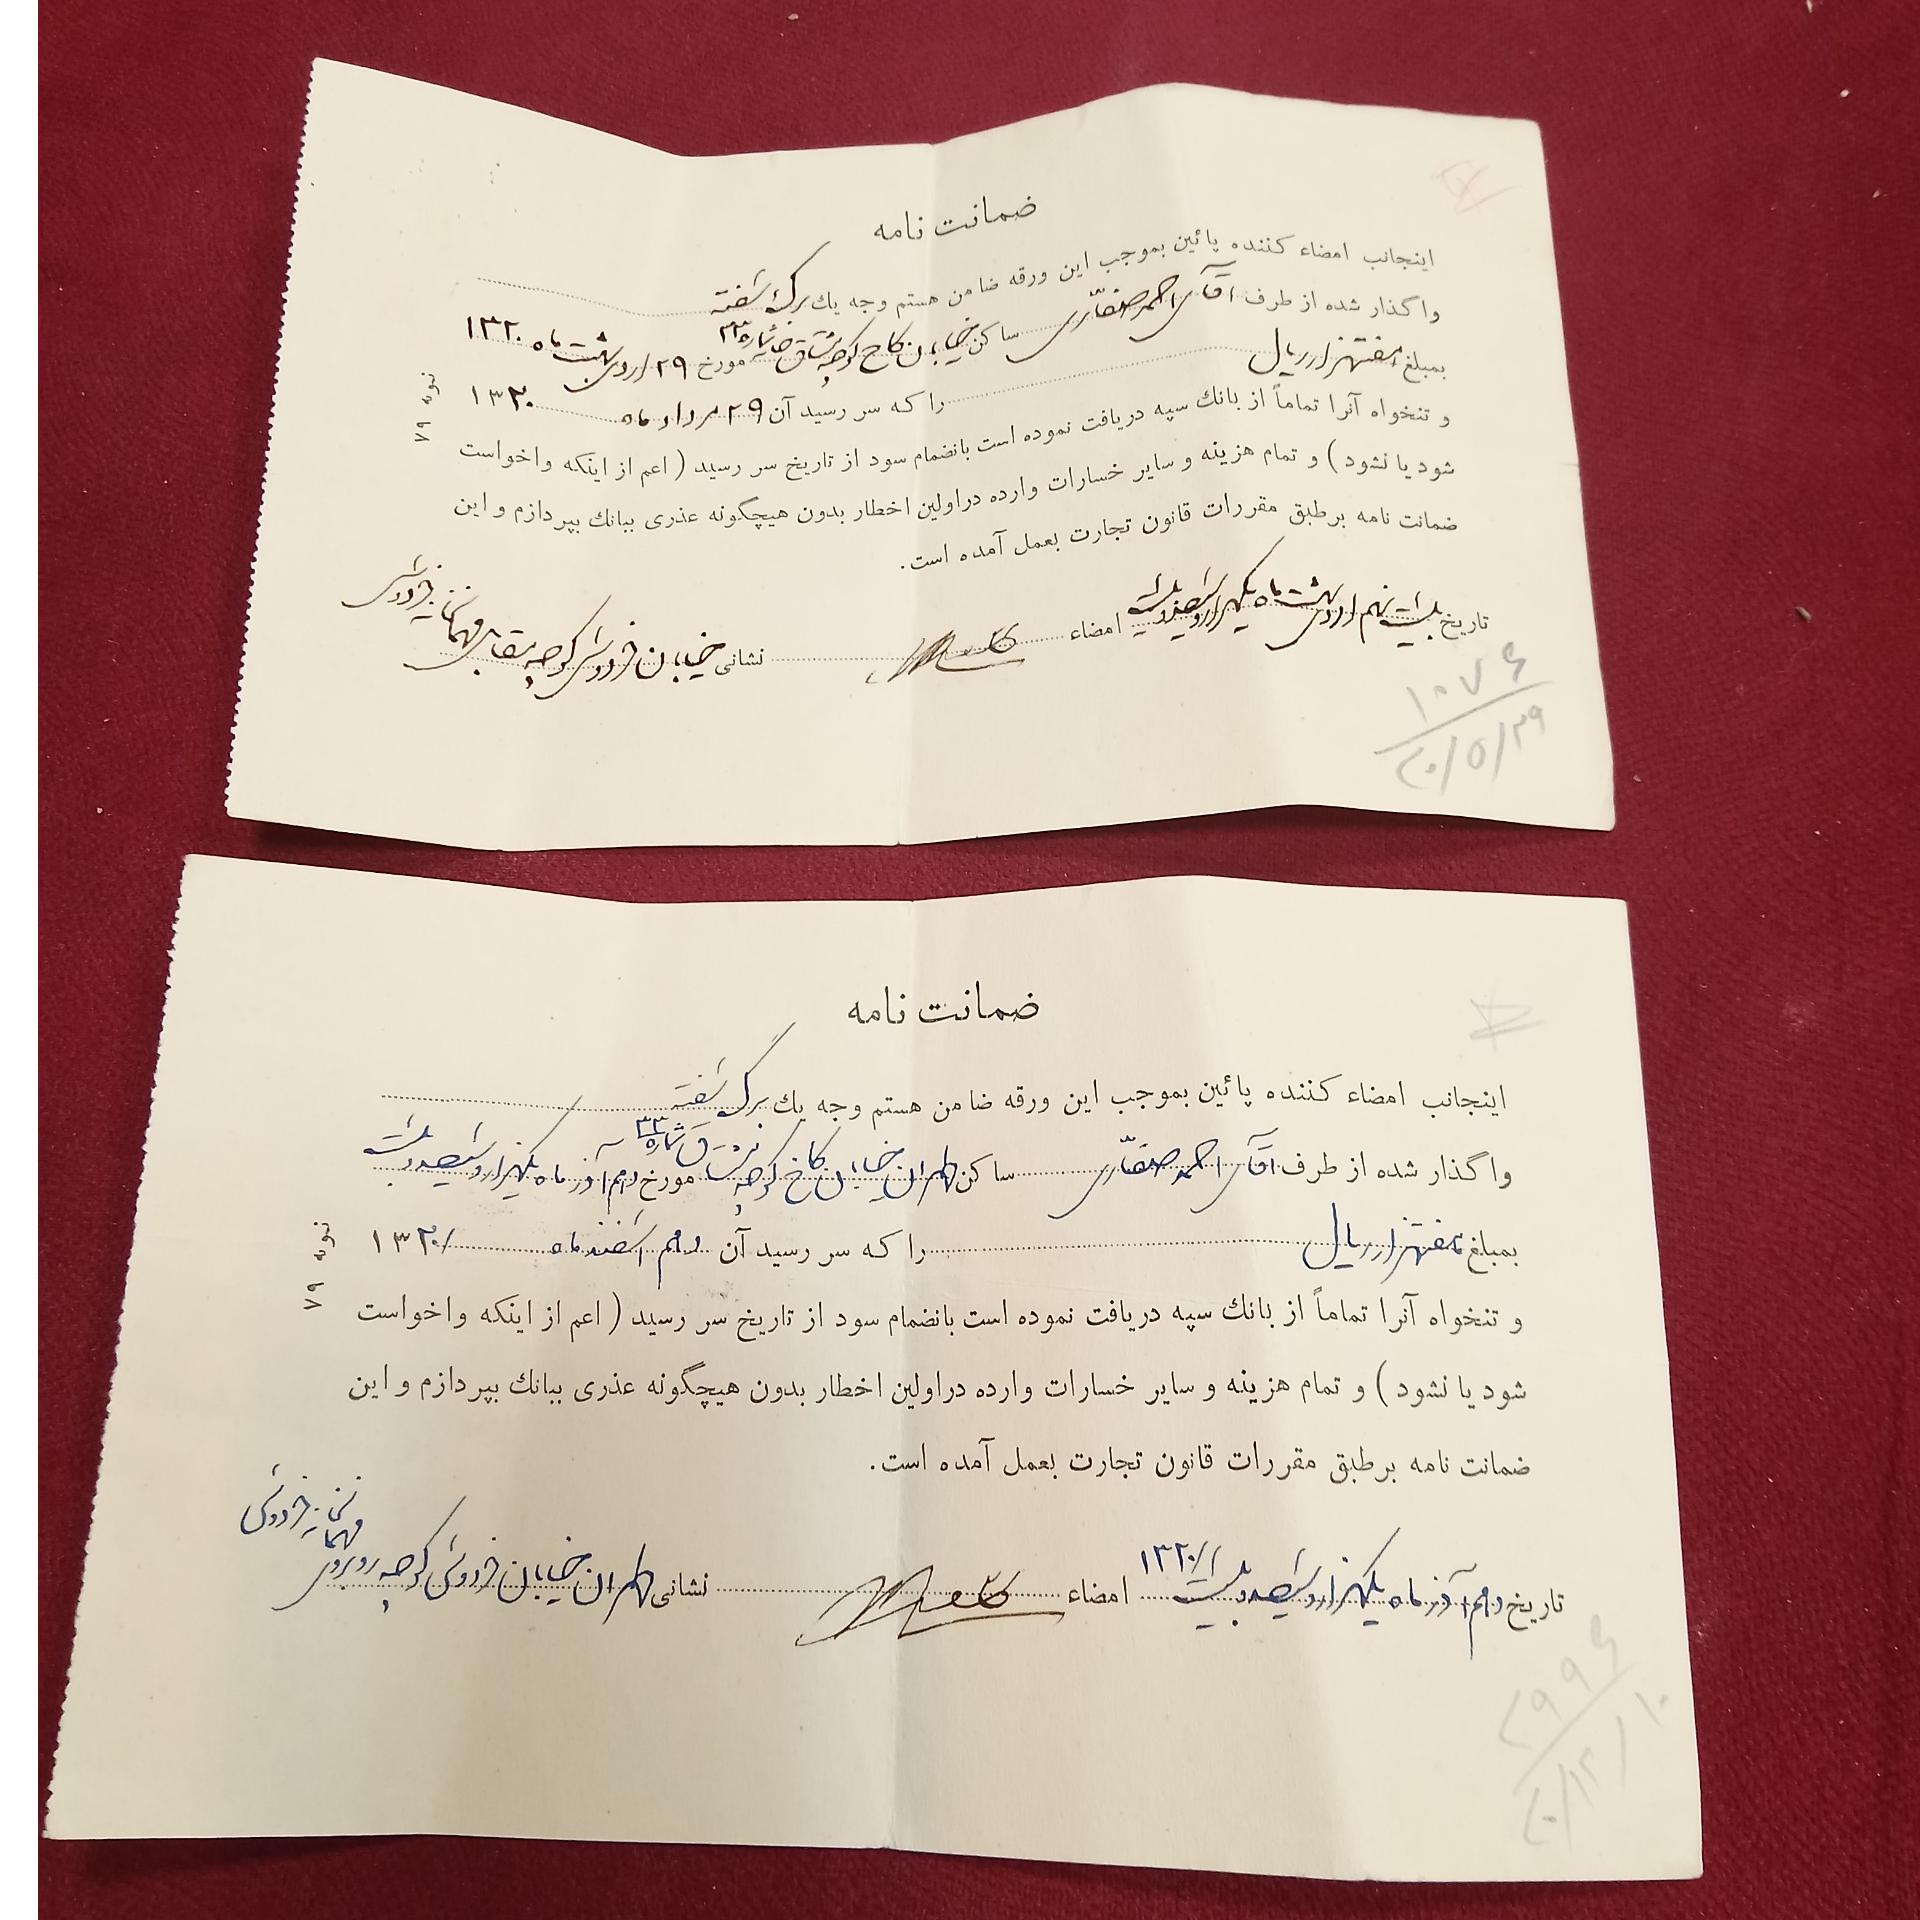 ضمانت نامه
اینجانب امضاء کننده پائین بموجب این ورقه ضامن هستم وجه یك برگ سفته
واگذار شده از طرف آقای احمد صفاری ساکن خیابان کاخ کوچه شماره ۳۳ مورخ ۲۹ اردیبهشت ماه ۱۳۲۰
بمبلغ هفتهزار ریال را که سر رسید آن ۲۹ مرداد ماه ۱۳۲۰
و تنخواه آنرا تماماً از بانك سپه دریافت نموده است بانضمام سود از تاریخ سر رسید ( اعم از اینکه واخواست
شود یا نشود ) و تمام هزینه و سایر خسارات وارده دراولین اخطار بدون هیچگونه عذری ببانك بپردازم و این
ضمانت نامه برطبق مقررات قانون تجارت بعمل آمده است.
تاریخ بیست نهم اردیبهشت ماه یکهزار و سیصد و بیست امضاء
نشانی خیابان فردوسی کوچه مقابل مهمانخانه فردوسی
نمونه ۷۹
۱۰۷۶
۲۰/۵/۲۹
ضمانت نامه
اینجانب امضاء کننده پائین بموجب این ورقه ضامن هستم وجه یك برگ سفته
واگذار شده از طرف آقای احمد صفاری ساکن طهران خیابان کاخ کوچه شماره ۳۳ مورخ دهم آذر ماه یکهزار و سیصد و بیست
بمبلغ هفتهزار ریال را که سر رسید آن دهم اسفند ماه ۱۳۲۰
و تنخواه آنرا تماماً از بانك سپه دریافت نموده است بانضمام سود از تاریخ سر رسید ( اعم از اینکه واخواست
شود یا نشود ) و تمام هزینه و سایر خسارات وارده دراولین اخطار بدون هیچگونه عذری ببانك بپردازم و این
ضمانت نامه برطبق مقررات قانون تجارت بعمل آمده است.
تاریخ دهم آذر ماه یکهزار و سیصد و بیست ۱۳۲۰ امضاء
نشانی طهران خیابان فردوسی کوچه روبروی مهمانخانه فردوسی
نمونه ۷۹
۲۹۹۶
۲۰/۱۲/۱۰